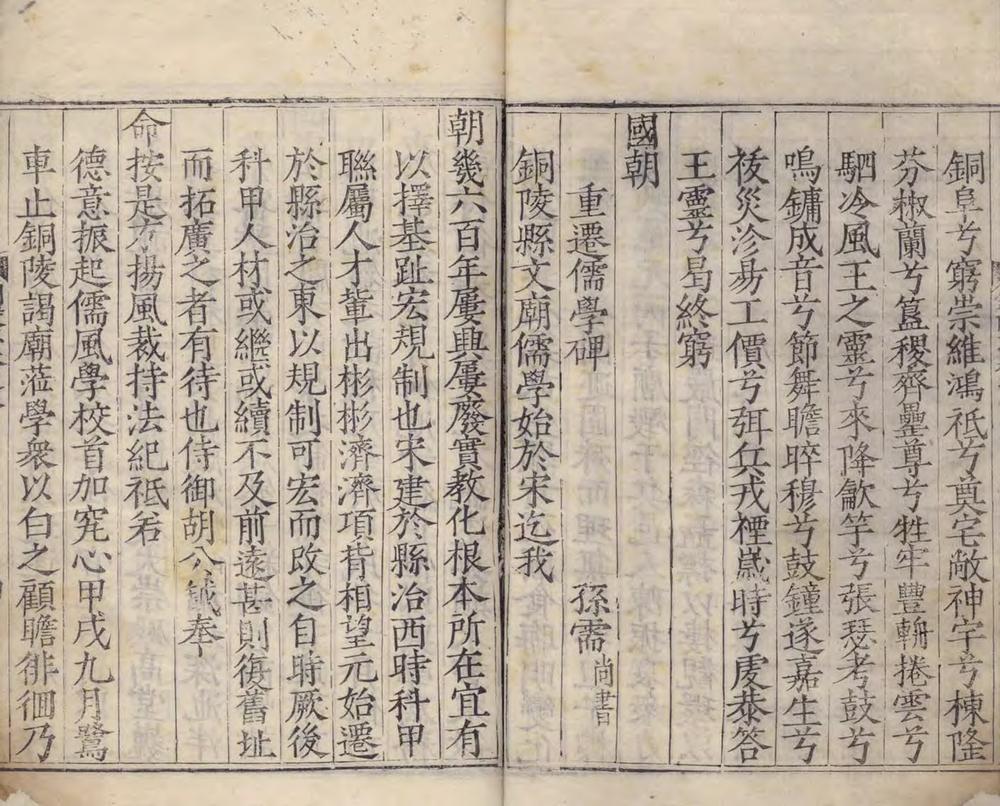 銅阜兮窮崇維鴻祇兮奠宅敞神宇兮棟隆
芬椒蘭兮簋稷齊罍尊兮牲牢豐輈捲雲兮
駟冷風王之靈兮來降龡竽兮張瑟考鼓兮
鳴鏞成音兮節舞瞻睟穆兮鼓鐘遂嘉生兮
祓災沴易工價兮弭兵戎禋歲時兮虔恭答
王靈兮曷終窮
國朝
重遷儒學碑
孫需尚書
銅陵縣文廟儒學始於宋迄我
朝幾六百年屢興屢廢實教化根本所在宜有
以擇基趾宏規制也宋建於縣治西時科甲
聯屬人才輩出彬彬濟濟項背相望元始遷
於縣治之東以規制可宏而改之自時厥後
科甲人材或繼或續不及前遠甚則復舊址
而拓廣之者有待也侍御胡公鉞奉
命按是方揚風裁持法紀祗若
德意振起儒風學校首加究心甲戌九月驚
車止銅陵謁廟蒞學衆以白之顧瞻徘徊乃